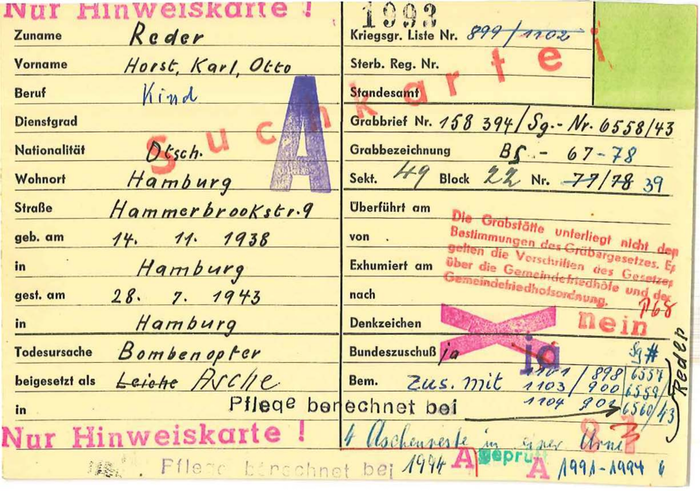 Nur Hinweiskarte !
1993
Zuname Reder
Vorname Horst, Karl, Otto
Beruf Kind
Dienstgrad
Nationalität Dtsch.
Wohnort Hamburg
Straße Hammerbrookstr. 9
geb. am 14. 11. 1938
in Hamburg
gest. am 28. 7. 1943
in Hamburg
Todesursache Bombenopfer
beigesetzt als Leiche Asche
in
A
Suchkartei
Kriegsgr. Liste Nr. 899/1102
Sterb. Reg. Nr.
Standesamt
Grabbrief Nr. 158 394/Sg.-Nr. 6558/43
Grabbezeichnung Bs - 67-78
Sekt. 49 Block 22 Nr. 77/78 39
Überführt am
von
Exhumiert am
nach
Denkzeichen
Bundeszuschuß ja
Bem. zus. mit
Die Grabstätte unterliegt nicht den
Bestimmungen des Gräbergesetzes. Es
gelten die Vorschriften des Gesetzes
über die Gemeindefriedhöfe und der
Gemeindefriedhofsordnung.
nein
ja
Sg #
1101/898 6557
1103/900 6559
1104 902 6560/43
Reder
Pflege berechnet bei
4 Aschenreste in einer Urne
Nur Hinweiskarte !
Pflege berechnet bei 1994 A geprüft A 1991-1994